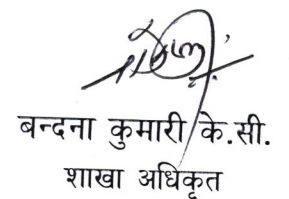 बन्दना कुमारी के.सी.
शाखा अधिकृत